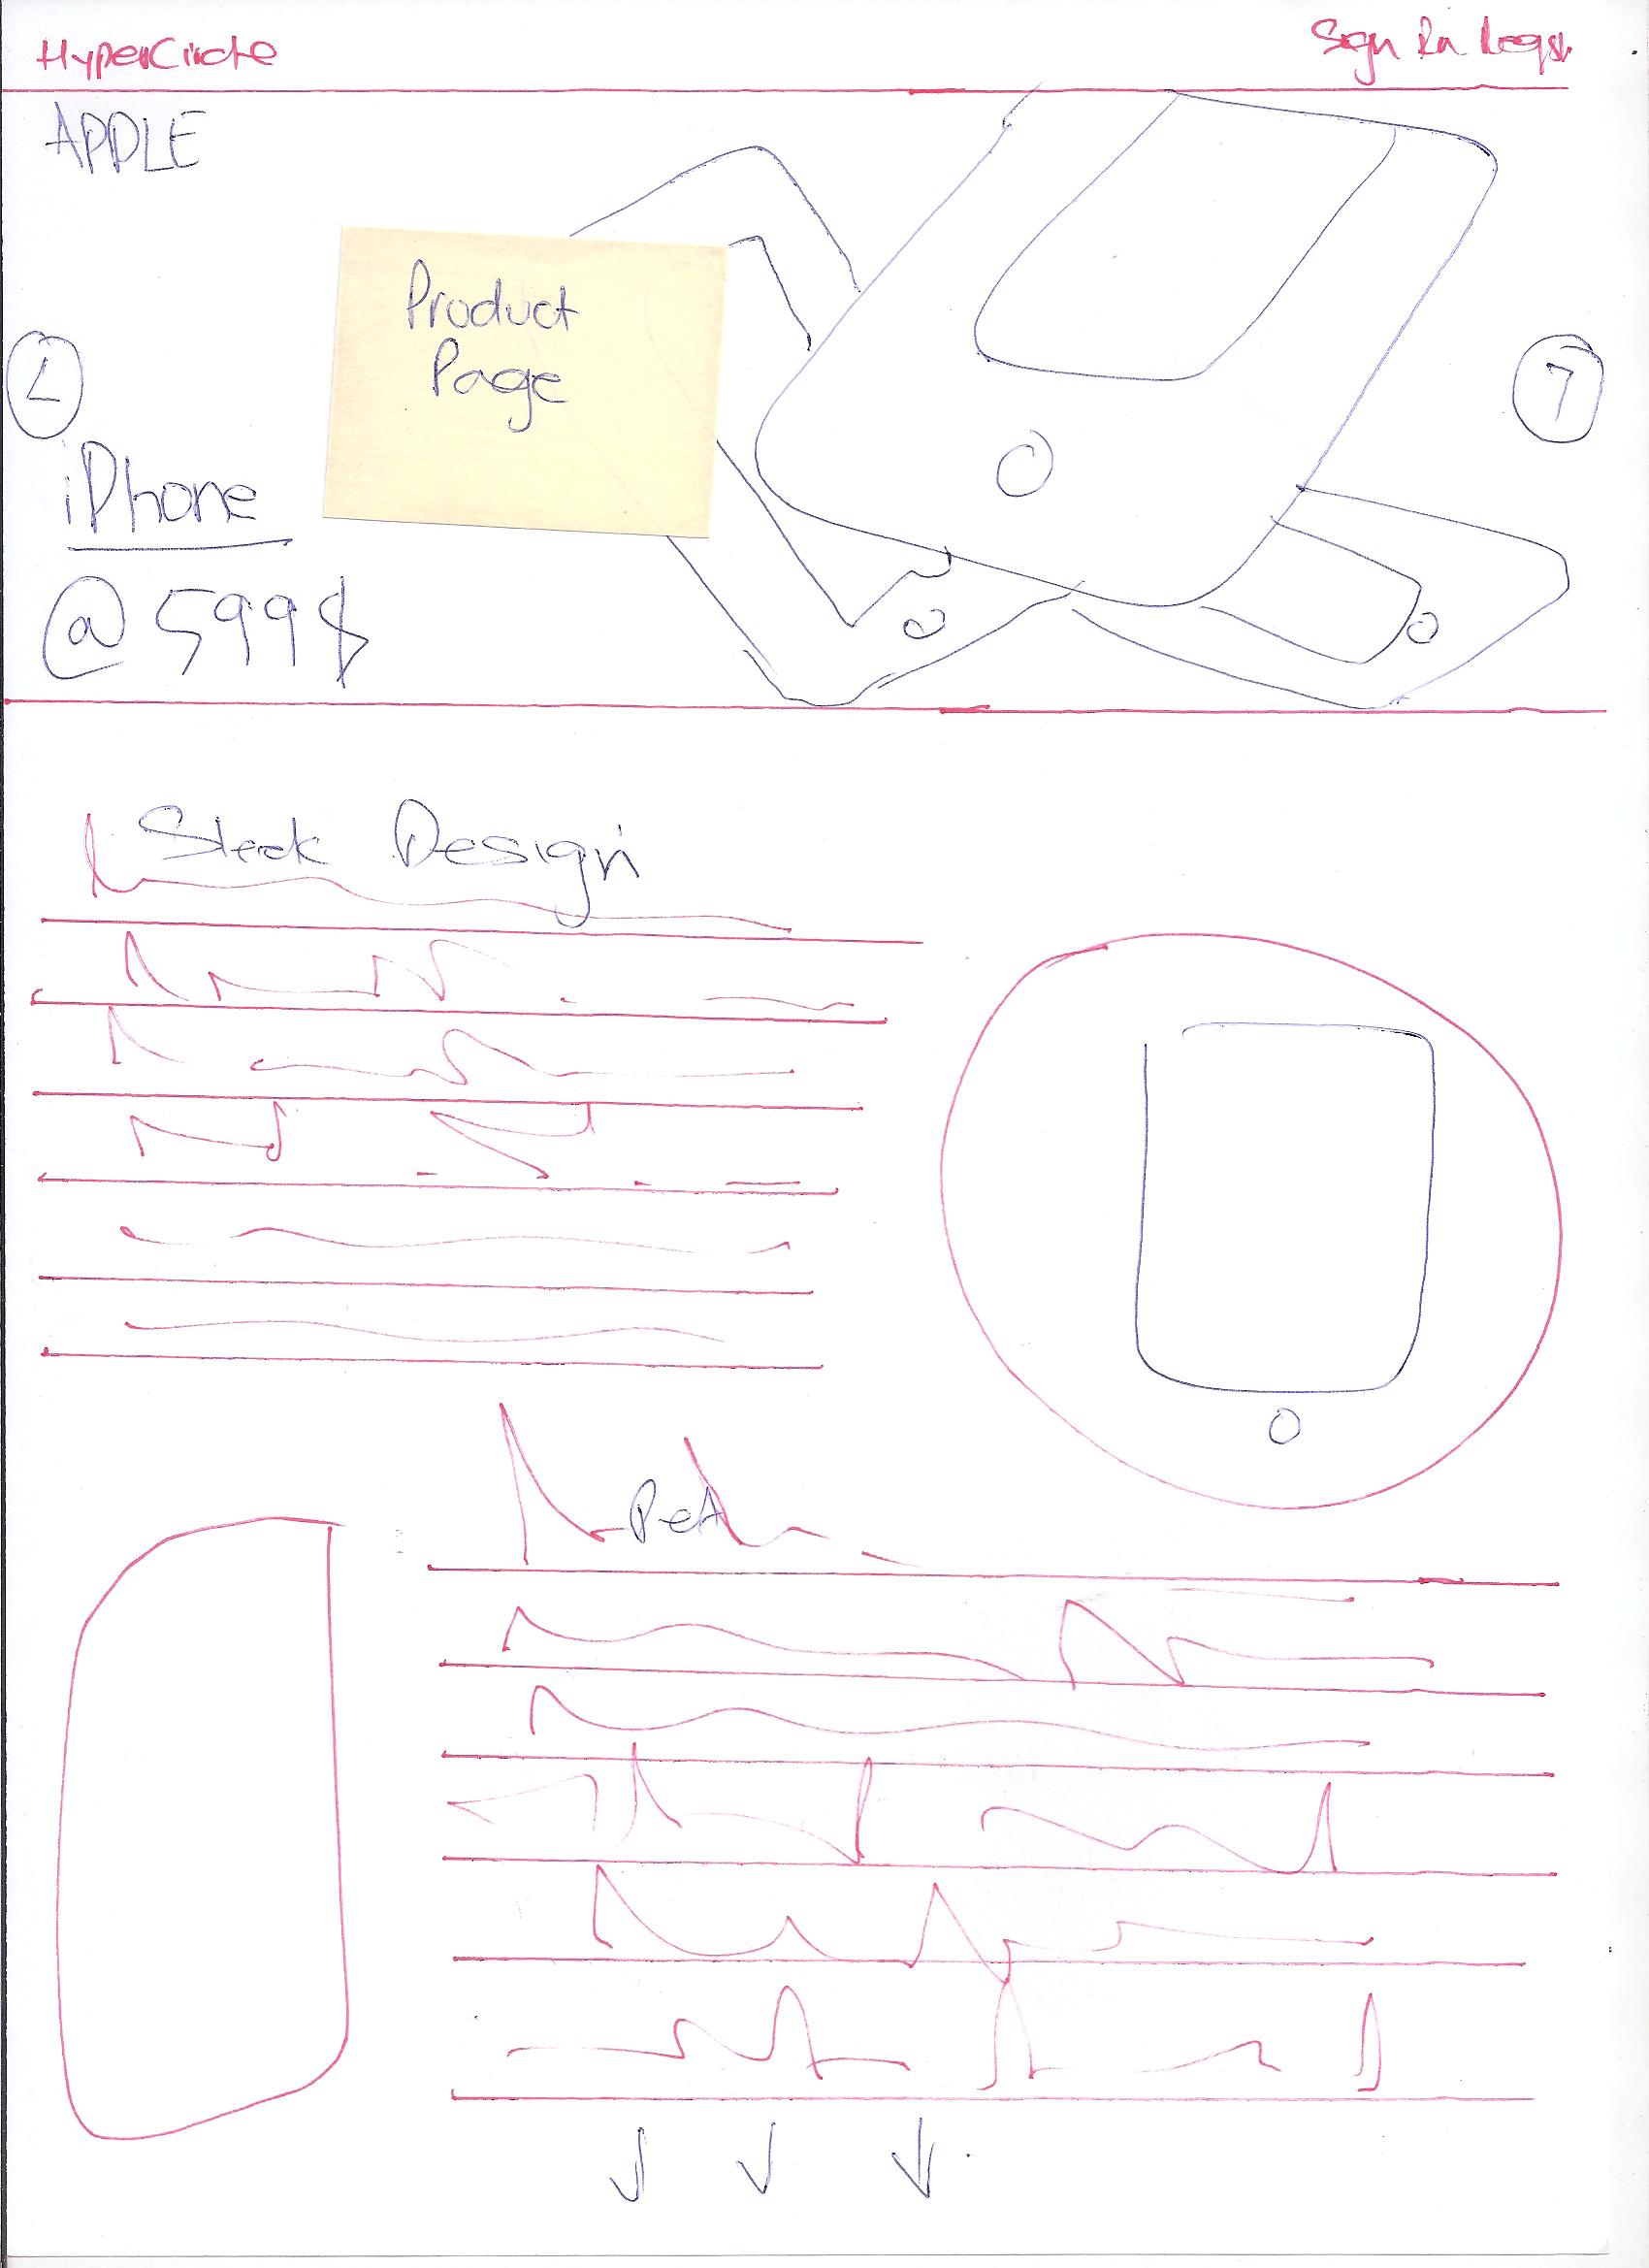 HyperCircle
Sign In
APPLE
Product
Page
L
7
iPhone
@ 599$
Sleek Design